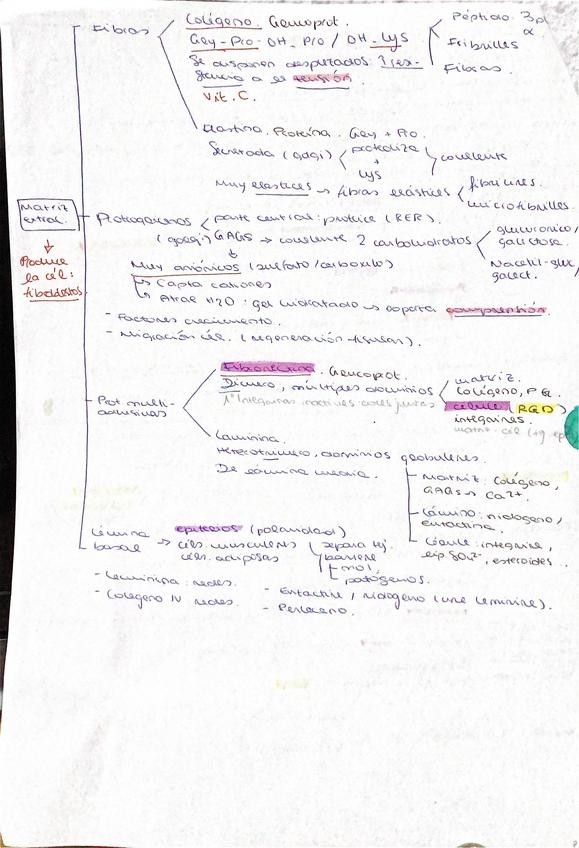 Fibras
Colágeno. Glucoprot.
Gly-Pro-OH-Pro / OH-Lys
Se disponen desplazados: ↑ resistencia a la tensión
Vit. C.
Péptido 3 pl α
Fibrillas
Fibras.
Elastina. Proteína. Gly + Pro.
Secretada (golgi)
proteoliza
+
Lys
covalente
Muy elásticas → fibras elásticas
fibrilinas.
microfibrillas.
Matriz
extral.
Produce
la cél:
fibroblastos
Proteoglicanos
(golgi)
parte central: proteica (RER).
GAGs → covalente 2 carbohidratos
glucurónico/
galactosa.
Nacetil-gluc/
galact.
Muy aniónicos (sulfato/carboxilo)
Capta cationes
Atrae H2O: gel hidratado → soporta compresión.
- Factores crecimiento.
- Migración cél. (regeneración tisular).
Prot multi-
adhesivas
Fibronectina. Glucoprot.
Dímero, múltiples dominios
matriz.
Colágeno, PG.
célula (RGD)
integrinas.
Laminina.
Heterotrímero, dominios globulares.
De lámina basal.
Matriz: colágeno,
GAGs → Ca2+.
Lámina: nidógeno/
entactina.
Célula: integrina,
lip. SO4²⁻, esteroides.
Lámina
basal
→ epitelios (polaridad)
céls. musculares
céls. adiposas
separa tej.
barrera
mol.
patógenos.
- Laminina: redes.
- Colágeno IV redes.
- Entactina / nidógeno (une laminina).
- Perlecano.